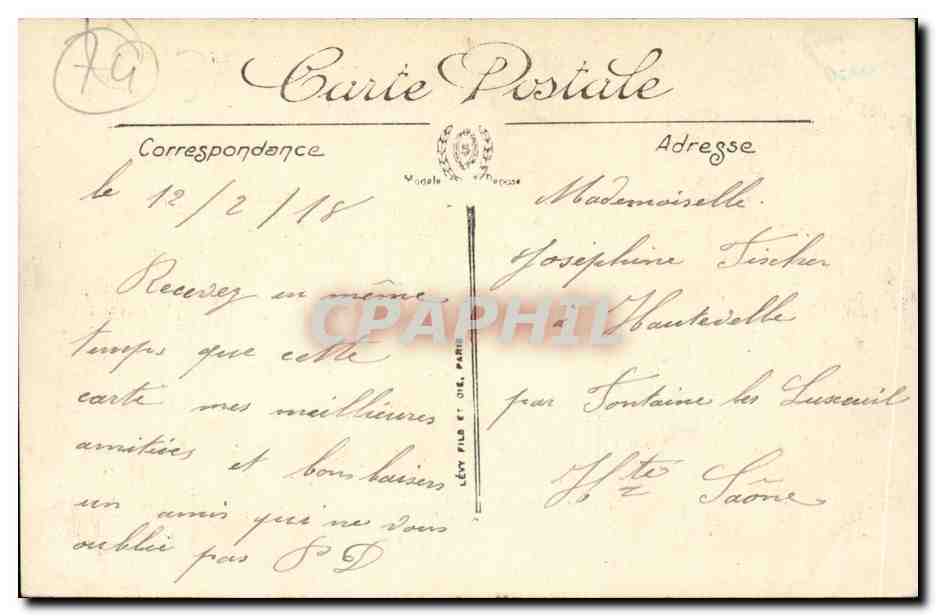 74
Carte Postale
Correspondance
Adresse
Modèle Déposé
le 12/2/18
Recevez en même
temps que cette
carte mes meillieures
amitiées et bons baisers
un amis qui ne vous
oublie pas P D
LÉVY FILS ET CIE, PARIS
Mademoiselle
Joséphine Fischer
a Hautevelle
par Fontaine les Luxeuil
Hte Saône
CPAPHIL